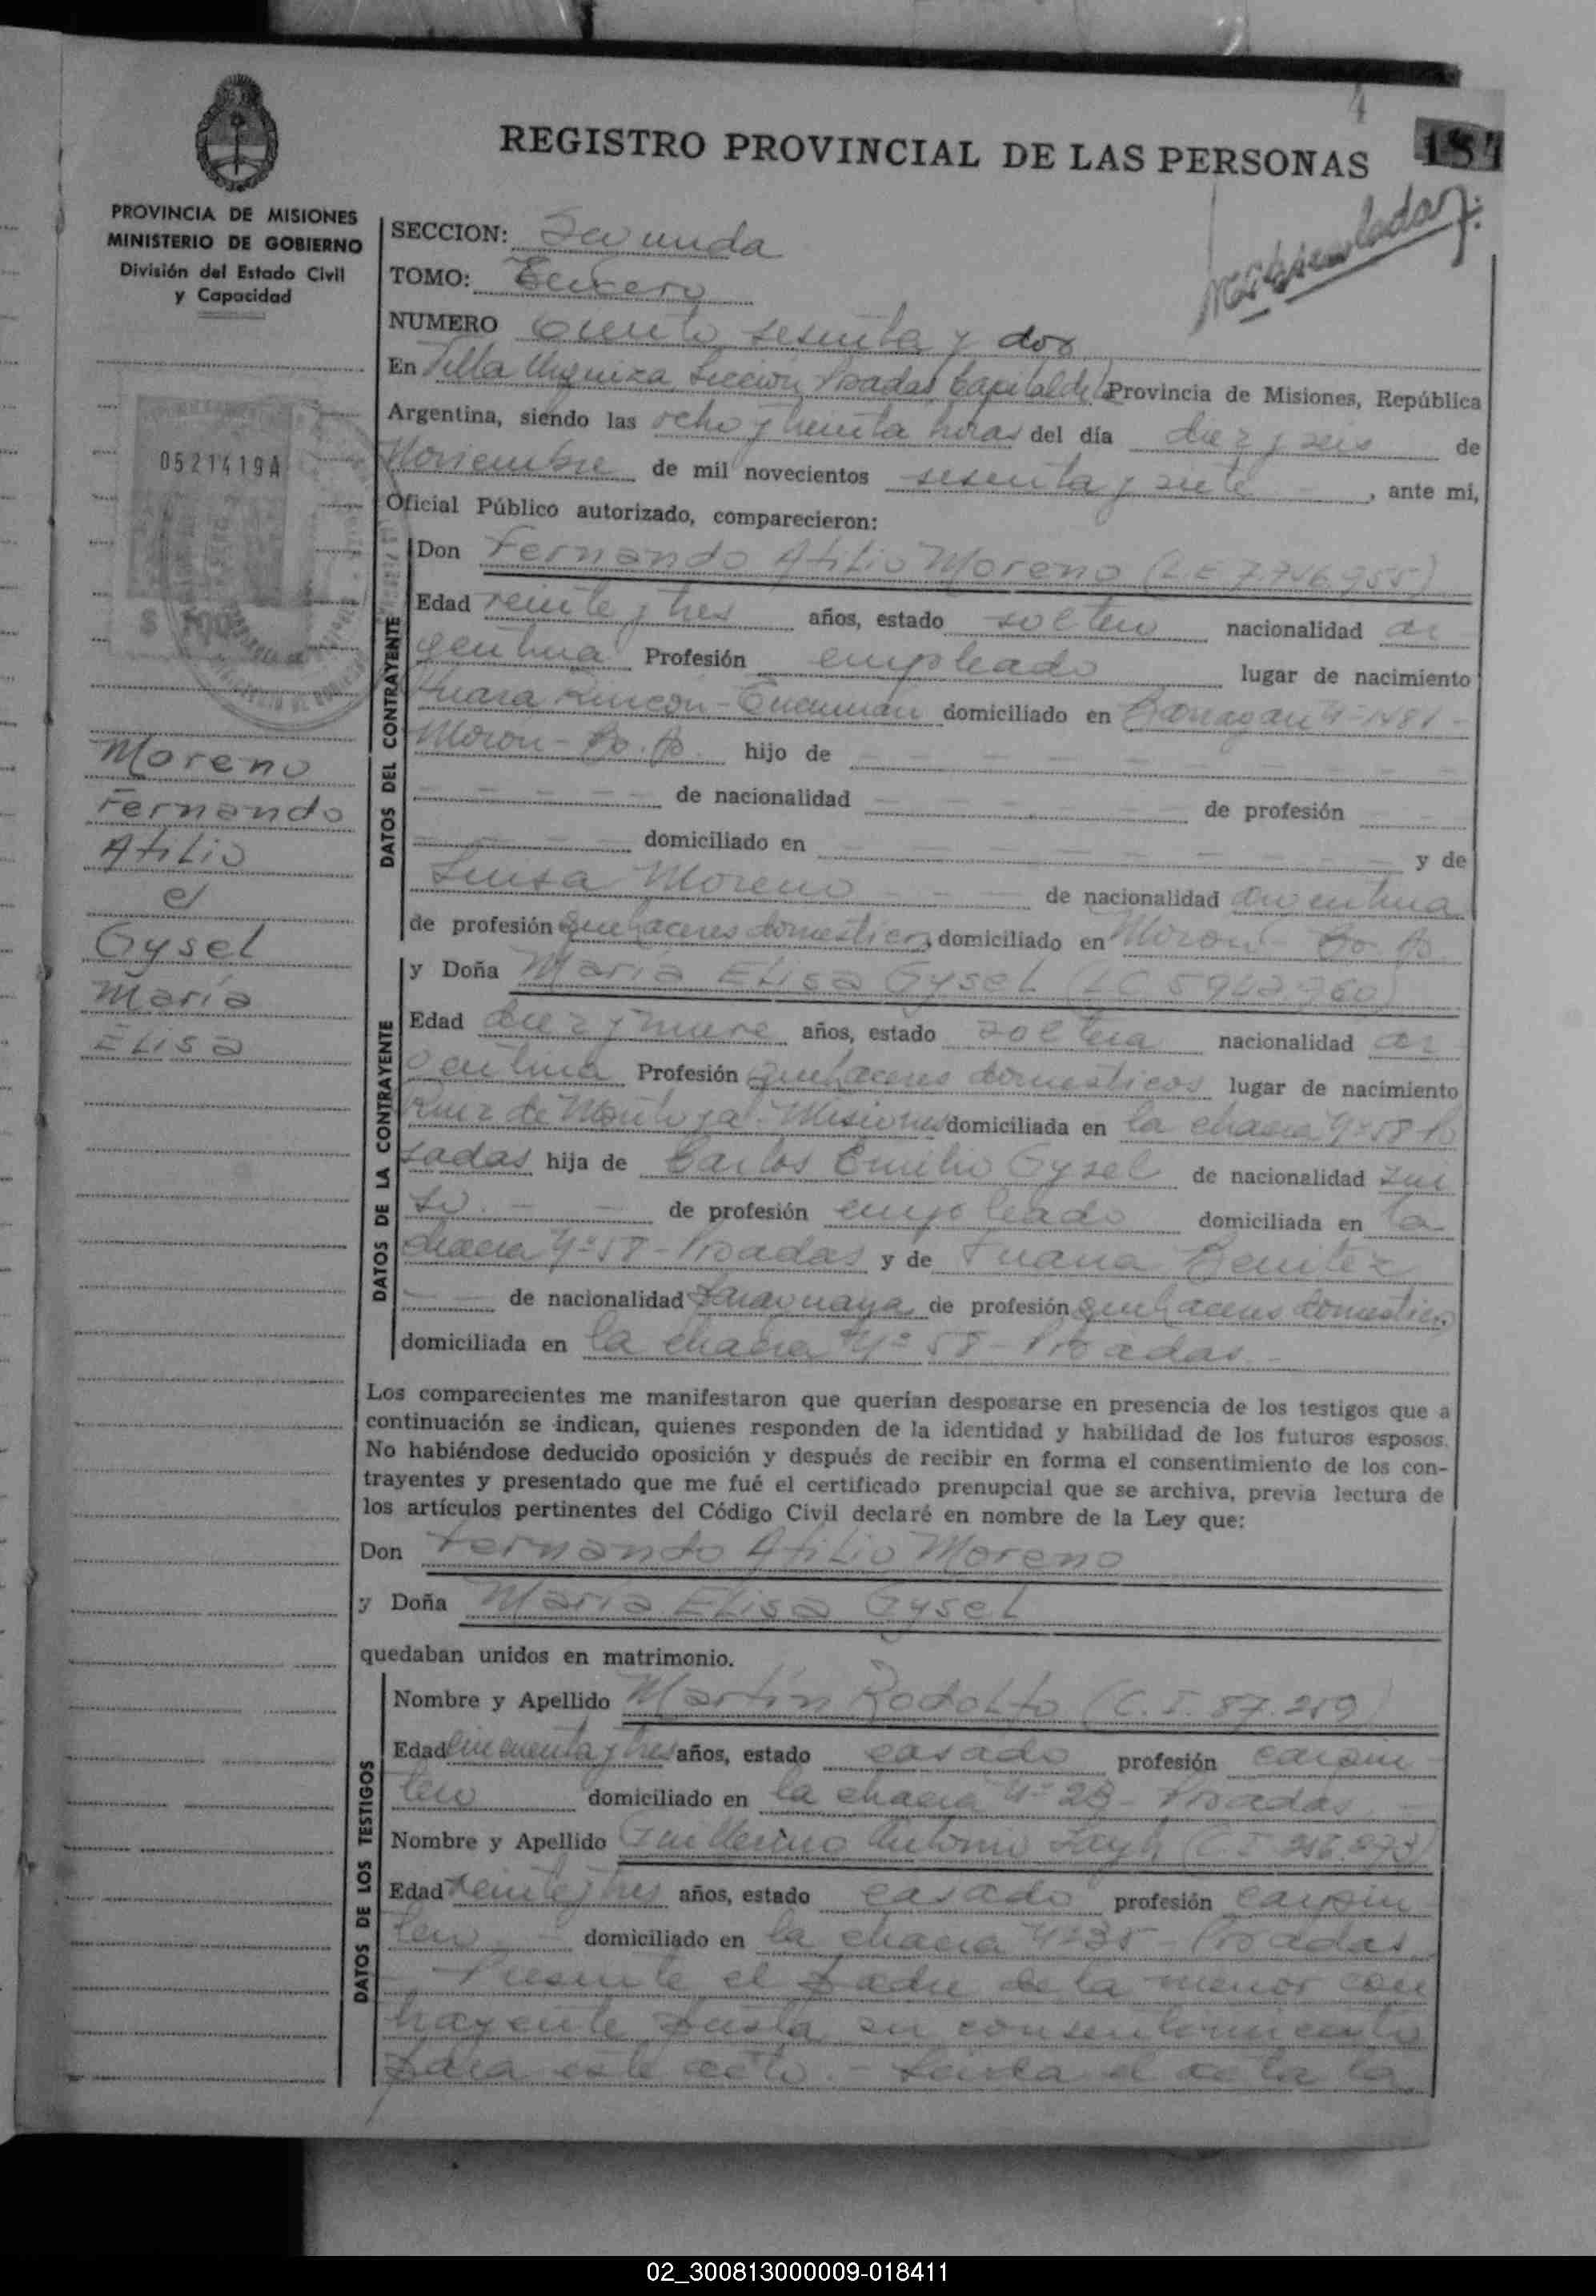 4
187
REGISTRO PROVINCIAL DE LAS PERSONAS
Mecanizado
PROVINCIA DE MISIONES
MINISTERIO DE GOBIERNO
División del Estado Civil
y Capacidad
0521419A
$ 100
Moreno
Fernando
Atilio
e/
Gysel
María
Elisa
SECCION: Segunda
TOMO: Tercero
NUMERO Ciento sesenta y dos
En Villa Urquiza Sección Posadas Capital de la Provincia de Misiones, República
Argentina, siendo las ocho y treinta horas del día diez y seis de
Noviembre de mil novecientos sesenta y siete, ante mí,
Oficial Público autorizado, comparecieron:
DATOS DEL CONTRAYENTE
Don Fernando Atilio Moreno (L.E 7.716.955)
Edad veinte y tres años, estado soltero nacionalidad ar
gentina Profesión empleado lugar de nacimiento
Rincón - Tucumán domiciliado en Barragan Nº 1481 -
Moron - Bs. As. hijo de
de nacionalidad de profesión
domiciliado en y de
Luisa Moreno de nacionalidad argentina
de profesión quehaceres domesticos, domiciliado en Moron - Bs. As
DATOS DE LA CONTRAYENTE
y Doña María Elisa Gysel (LC 5942760)
Edad diez y nueve años, estado soltera nacionalidad ar
gentina Profesión quehaceres domesticos lugar de nacimiento
Ruiz de Montoya - Misiones domiciliada en la chacra Nº 58 Po
sadas hija de Carlos Emilio Gysel de nacionalidad sui
zo. - - de profesión empleado domiciliada en la
chacra Nº 58 - Posadas y de Juana Benitez
de nacionalidad Paraguaya de profesión quehaceres domesticos
domiciliada en la chacra Nº 58 - Posadas. -
Los comparecientes me manifestaron que querían desposarse en presencia de los testigos que a
continuación se indican, quienes responden de la identidad y habilidad de los futuros esposos.
No habiéndose deducido oposición y después de recibir en forma el consentimiento de los con-
trayentes y presentado que me fué el certificado prenupcial que se archiva, previa lectura de
los artículos pertinentes del Código Civil declaré en nombre de la Ley que:
Don Fernando Atilio Moreno
y Doña María Elisa Gysel
quedaban unidos en matrimonio.
DATOS DE LOS TESTIGOS
Nombre y Apellido Martín Rodolfo (C.I. 87.259)
Edad cincuenta y tres años, estado casado profesión carpin
tero domiciliado en la chacra Nº 28 - Posadas. -
Nombre y Apellido Guillermo Antonio (C.I. 216.273)
Edad veinte y tres años, estado casado profesión carpin
tero domiciliado en la chacra Nº 35 - Posadas
- Presente el padre de la menor con
trayente presta su consentimiento
para este acto. - Leida el acta la
02_300813000009-018411